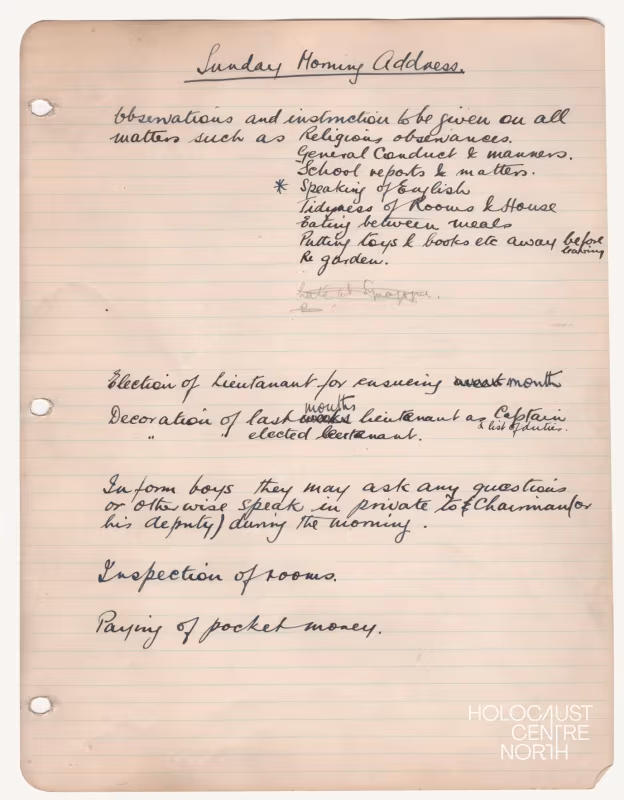 Sunday Morning Address.
Observations and instruction to be given on all
matters such as Religious observances.
General Conduct & manners.
School reports & matters.
* Speaking of English
Tidyness of Rooms & House
Eating between meals
Putting toys & books etc away before
leaving
Re garden.
Late at Synagogue.
Election of Lieutanant for ensueing week month
months
Decoration of last weeks lieutenant as Captain
& list of duties.
" " elected lieutenant.
Inform boys they may ask any questions
or otherwise speak in private to Chairman (or
his deputy) during the morning.
Inspection of rooms.
Paying of pocket money.
HOLOCAUST
CENTRE
NORTH